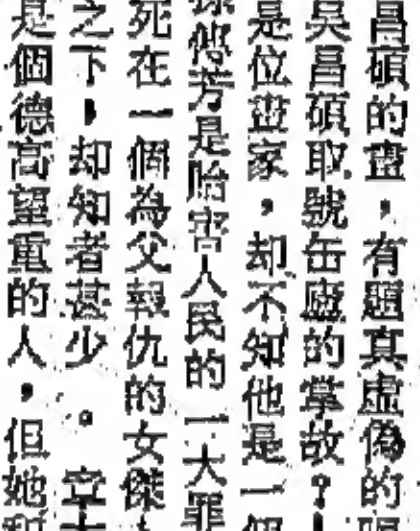 昌碩的畫，有題真虛偽的
吳昌碩取號缶廬的掌故？
是位畫家，却不知他是一個
傳芳是貽害人民的一大罪
死在一個為父報仇的女傑
之下，却知者甚少。
是個德高望重的人，但她